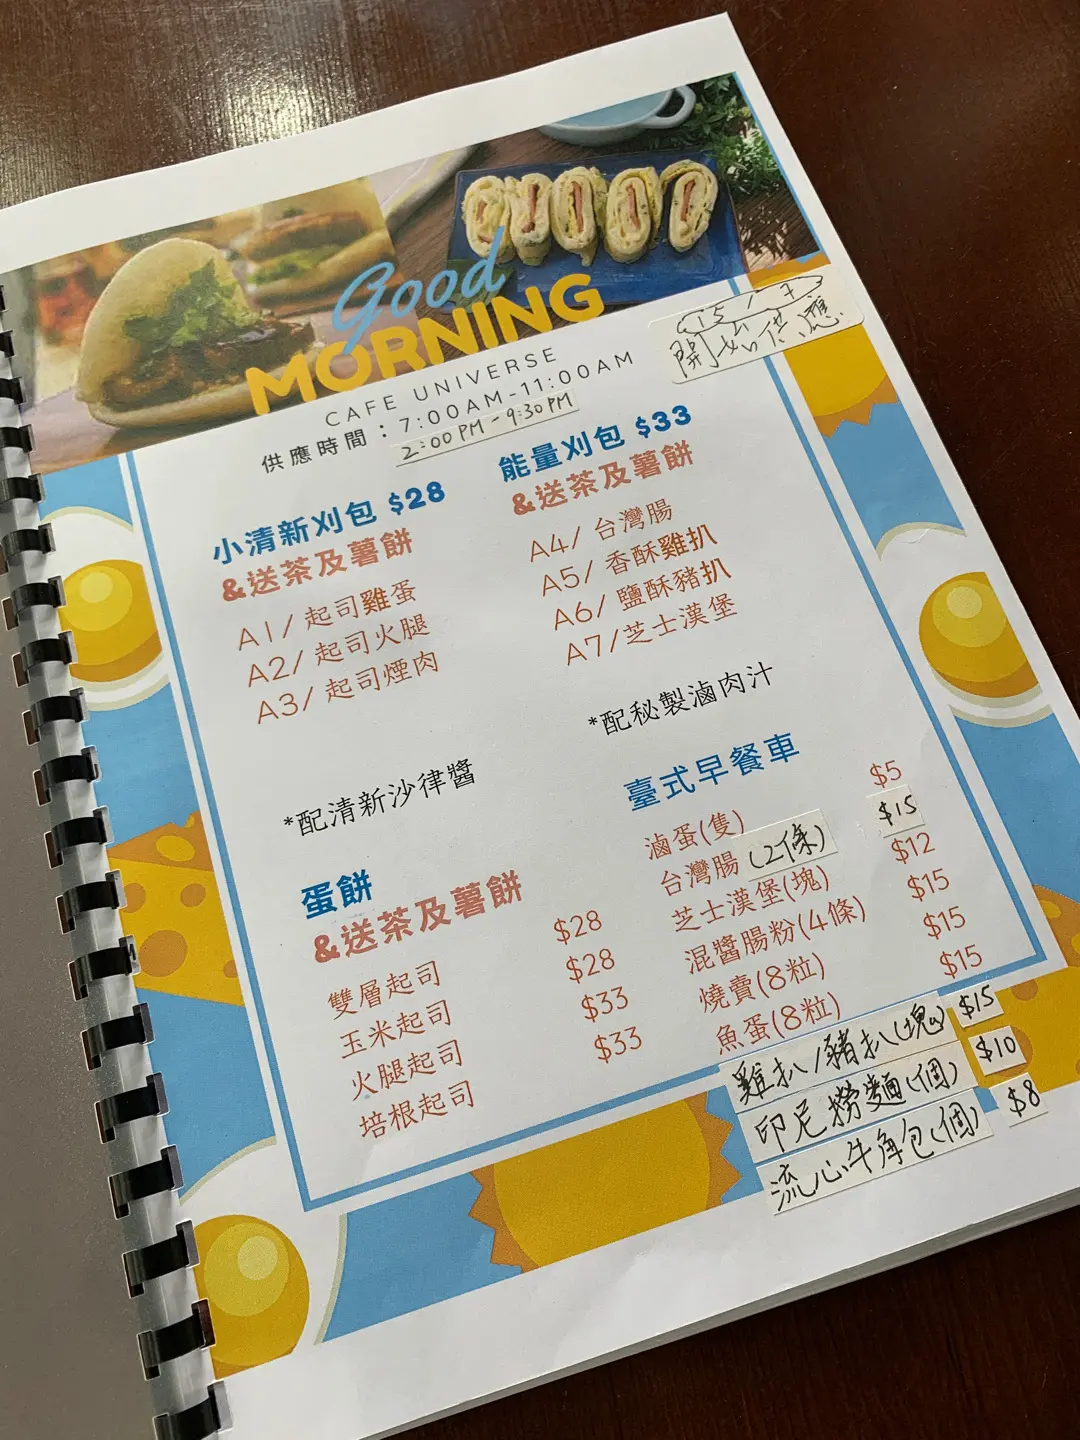 Good
MORNING
CAFE UNIVERSE
供應時間：7:00AM-11:00AM
2:00PM-9:30PM
15/7
開始供應
小清新刈包 $28
&送茶及薯餅
A1/起司雞蛋
A2/起司火腿
A3/起司煙肉
*配清新沙律醬
能量刈包 $33
&送茶及薯餅
A4/台灣腸
A5/香酥雞扒
A6/鹽酥豬扒
A7/芝士漢堡
*配秘製滷肉汁
蛋餅
&送茶及薯餅
雙層起司 $28
玉米起司 $28
火腿起司 $33
培根起司 $33
臺式早餐車
滷蛋(隻) $5
台灣腸(2條) $15
芝士漢堡(塊) $12
混醬腸粉(4條) $15
燒賣(8粒) $15
魚蛋(8粒) $15
雞扒/豬扒(塊) $15
印尼撈麵(個) $10
流心牛角包(個) $8